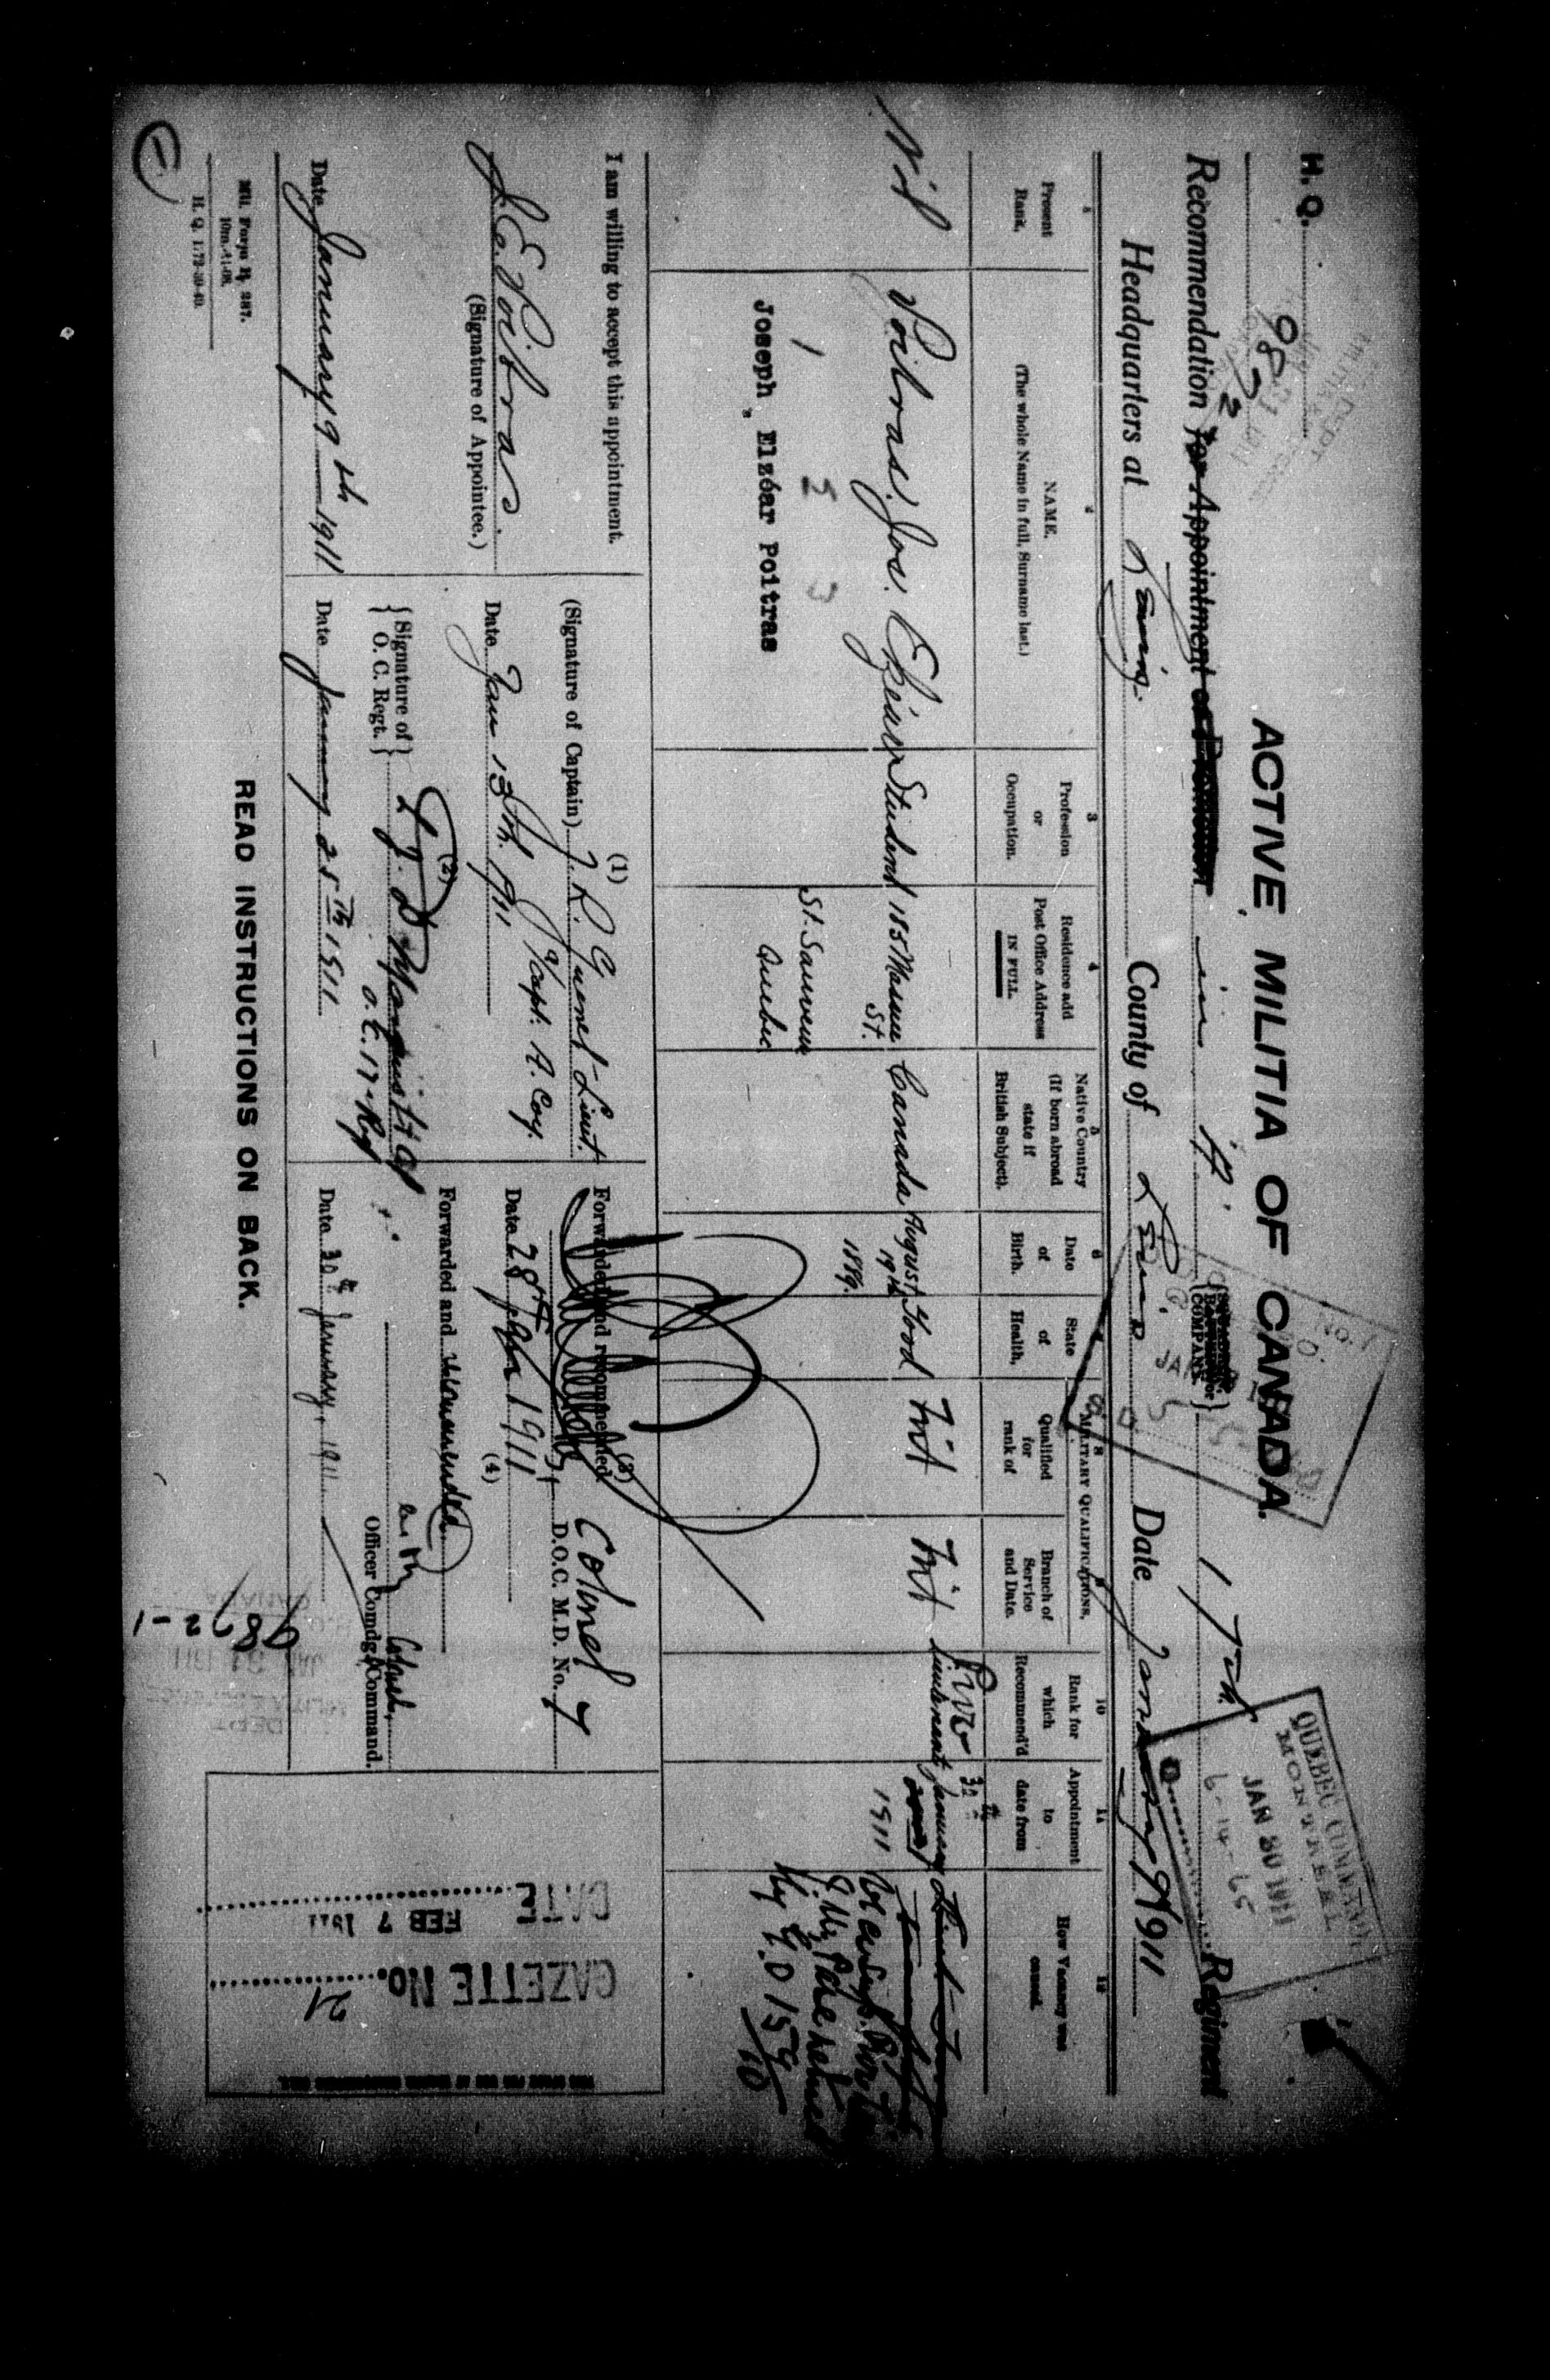 H. Q. 9872
ACTIVE MILITIA OF CANADA.
QUEBEC COMMAND
MONTREAL
JAN 30 1911
6-14-65
Recommendation for Appointment or Promotion in "A" COMPANY 17th Regiment
Headquarters at Levis County of Levis Date January 9 1911
1
Present Rank.
2
NAME.
(The whole Name in full, Surname last.)
3
Profession or Occupation.
4
Residence add Post Office Address
IN FULL.
5
Native Country (If born abroad state if British Subject).
6
Date of Birth.
State of Health,
MILITARY QUALIFICATIONS,
8
Qualified for rank of
9
Branch of Service and Date.
10
Rank for which Recommend'd
11
Appointment to date from
12
How Vacancy was caused.
Nil
Poitras, Jos. Elzéar
Student
185 Massue St.
St. Sauveur
Quebec
Canada
August 19th 1889.
Good
Nil
Nil
Prov
Lieutenant
30th
January
1911
1 2 3
Joseph Elzéar Poitras
I am willing to accept this appointment.
J. E. Poitras.
(Signature of Appointee.)
Date January 9th 1911
(1)
(Signature of Captain) Lieut.
Capt. A. Coy.
Date Jan 13th 1911
(2)
{Signature of O. C. Regt.}
O.C. 17 Reg
Date January 25th 1911
Forwarded and recommended
(3)
Colonel
D.O.C. M.D. No. 7
Date 28th Jan 1911
(4)
Forwarded and recommended
Colonel,
Officer Comdg. Command.
Date 30th January, 1911
9872-1
DATE FEB 7 1911
GAZETTE No. 21
Mil. Form B. 287.
10m.-11-08.
H. Q. 1772-39-49.
READ INSTRUCTIONS ON BACK.